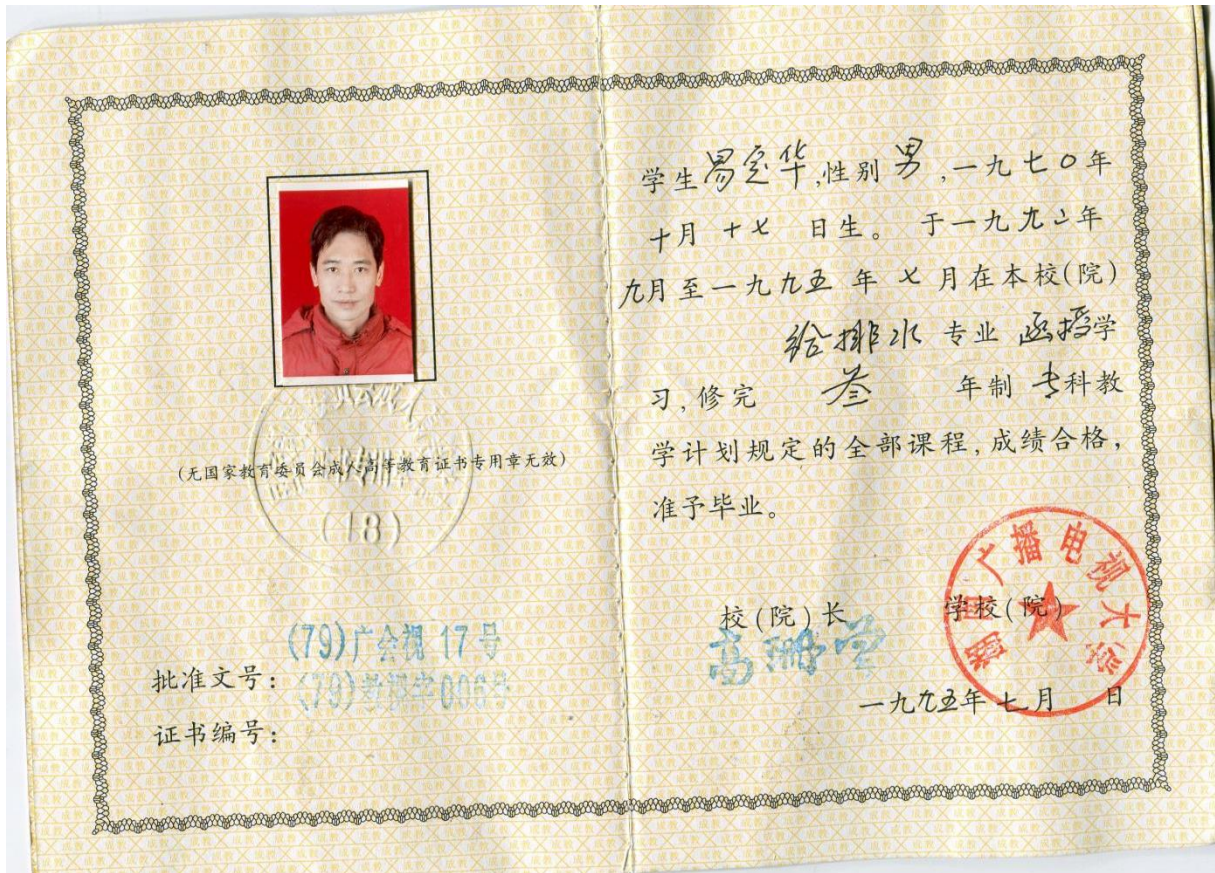 (无国家教育委员会成人高等教育证书专用章无效)
(18)
(79)广会视 17号
批准文号:
(79)教视字006号
证书编号:
学生易定华,性别男,一九七〇年
十月十七日生。于一九九二年
九月至一九九五年七月在本校(院)
给排水专业函授学
习,修完叁年制专科教
学计划规定的全部课程,成绩合格,
准予毕业。
校(院)长 学校(院)
广播电视大学
一九九五年七月 日